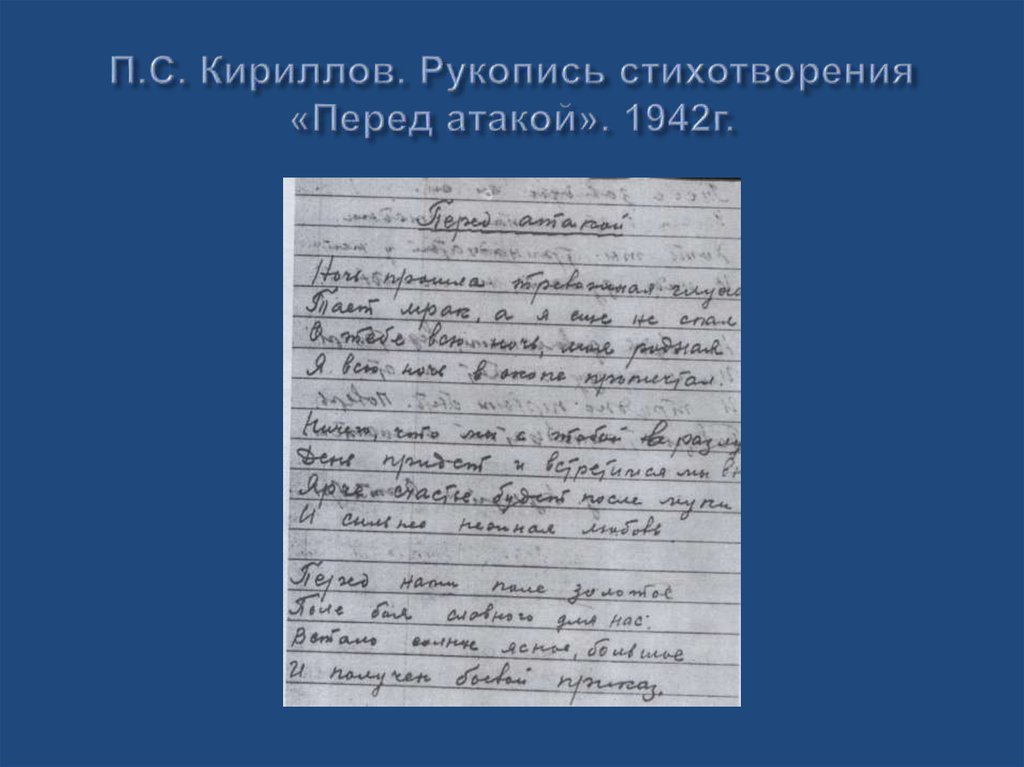 П.С. Кириллов. Рукопись стихотворения
«Перед атакой». 1942г.
Перед атакой
Ночь прошла тревожная глуха
Тает мрак, а я еще не спал
О тебе всю ночь, моя родная
Я всю ночь в окопе промечтал.
Ничего, что мы с тобой в разлу
День придет и встретимся мы вн
Ярче счастье будет после муки
И сильнее нежная любовь
Перед нами поле золотое
Поле боя славного для нас.
Встало солнце ясное, большое
И получен боевой приказ.